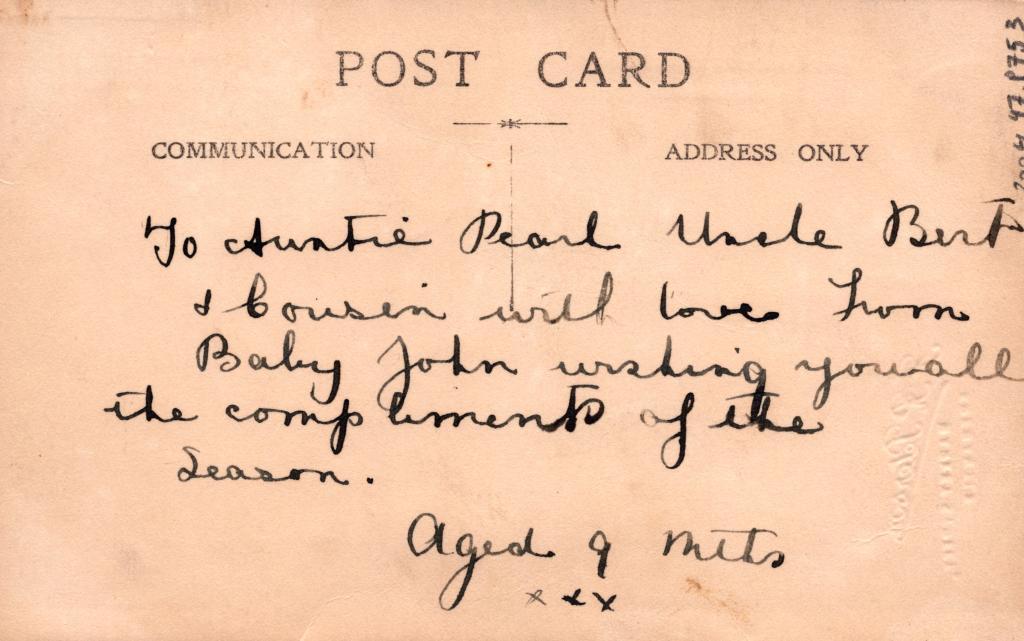 POST CARD
COMMUNICATION
ADDRESS ONLY
To Auntie Pearl Uncle Bert
& Cousin with love from
Baby John wishing you all
the compliments of the
Season.
Aged 9 mths
x x x